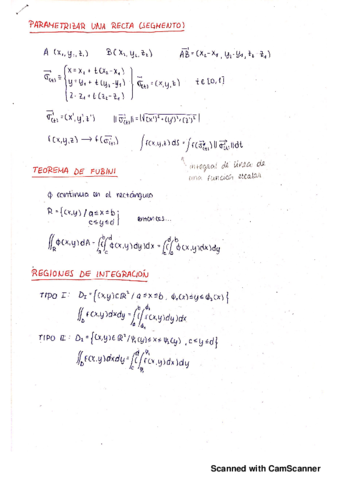 PARAMETRIZAR UNA RECTA (SEGMENTO)
A (x₁, y₁, z₁) B(x₂, y₂, z₂) AB = (x₂-x₁, y₂-y₁, z₂-z₁)
σ(t) = { x = x₁ + t(x₂-x₁)
y = y₁ + t(y₂-y₁)
z = z₁ + t(z₂-z₁) } σ(t) = (x,y,z) t∈[0,1]
σ'(t) = (x', y', z') ||σ'(t)|| = |√(x')²+(y')²+(z')²|
f(x,y,z) → f(σ(t)) ∫f(x,y,z) ds = ∫f(σ(t)) ||σ'(t)|| dt
integral de línea de
una función escalar
TEOREMA DE FUBINI
ϕ continua en el rectángulo
R = {(x,y) / a≤x≤b ; c≤y≤d} entonces...
∬_R ϕ(x,y)dA = ∫_a^b∫_c^d ϕ(x,y)dy)dx = ∫_c^d∫_a^b ϕ(x,y)dx)dy
REGIONES DE INTEGRACIÓN
TIPO I: D₁ = {(x,y)∈ℝ² / a≤x≤b, ϕ₁(x)≤y≤ϕ₂(x)}
∬_D f(x,y)dxdy = ∫_a^b∫_ϕ₁^ϕ₂ f(x,y)dy)dx
TIPO II: D₂ = {(x,y)∈ℝ² / ψ₁(y)≤x≤ψ₂(y), c≤y≤d}
∬_D f(x,y)dxdy = ∫_c^d∫_ψ₁^ψ₂ f(x,y)dx)dy
Scanned with CamScanner